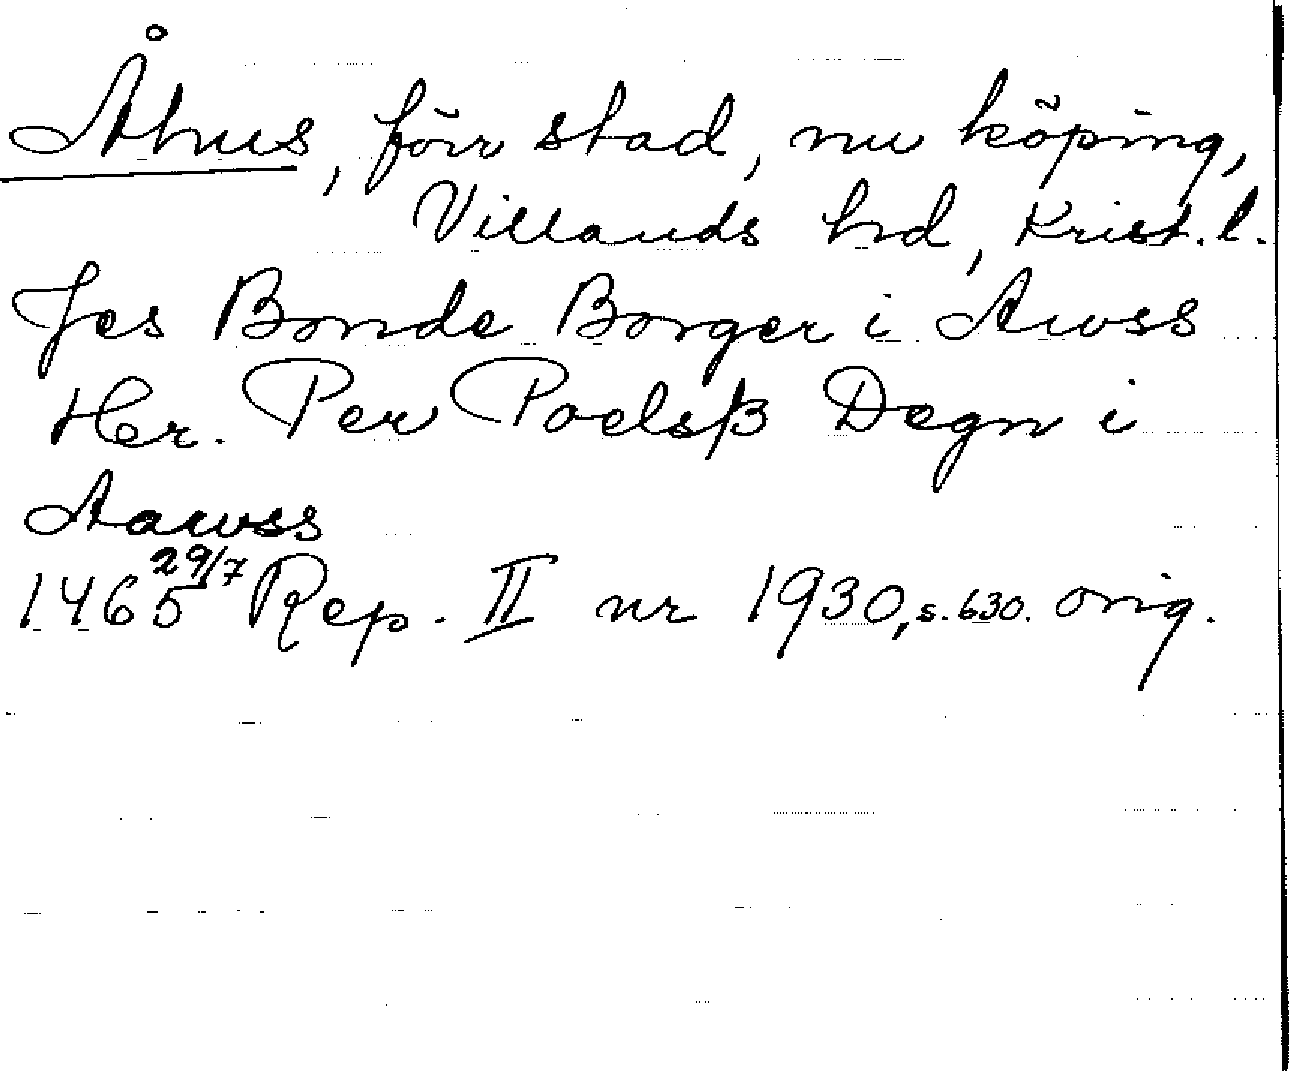 Åhus, förr stad, nu köping,
Villands hd, Krist. l.
Jes Bonde Borger i Awss
Her. Per Poelsß Degn i
Aawss
1465 29/7 Rep. II nr 1930, s. 630. orig.